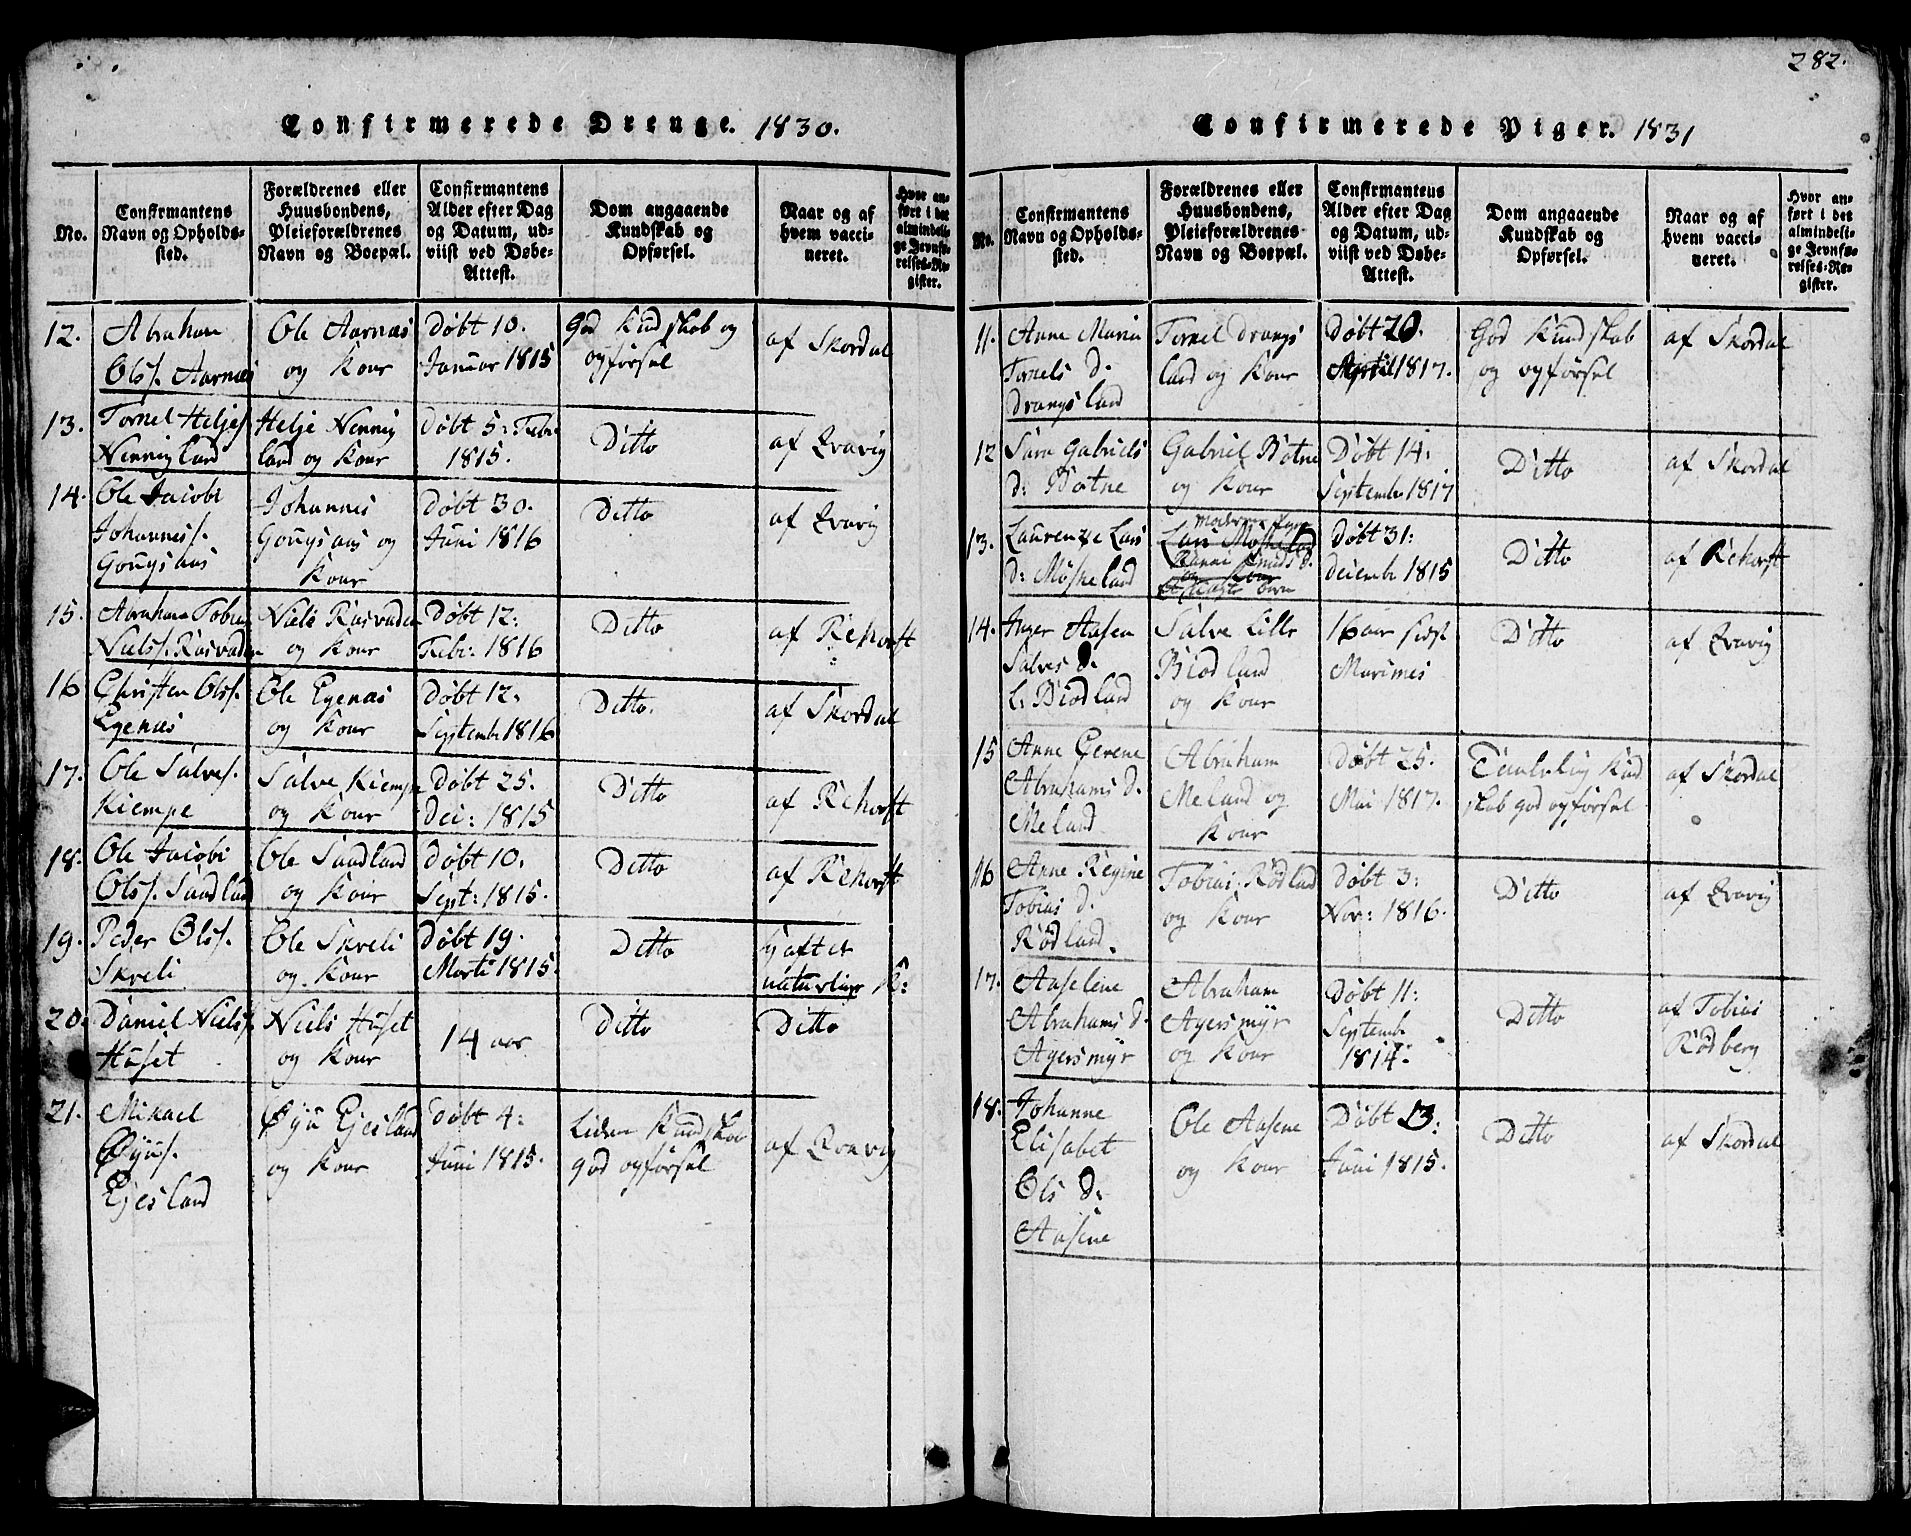 282.
Confirmerede Drenge. 1830.
No.
Confirmantens
Navn og Opholds-
sted.
Forældrenes eller
Huusbondens,
Pleieforældrenes
Navn og Boepæl.
Confirmantens
Alder efter Dag
og Datum, ud-
viist ved Døbe-
Attest.
Dom angaaende
Kundskab og
Opførsel.
Naar og af
hvem vacci-
neret.
Hvor an-
ført i det
almindeli-
ge Jevnfø-
relses-Re-
gister.
12.
Abraham
Ols. Aarnæs
Ole Aarnæs
og Kone
Døbt 10.
Januar 1815
God Kundskab og
opførsel
af Skordal
13.
Tornel Heljes.
Nenningland
Helje Nenning
land og Kone
Døbt 5: Febr.
1815.
Ditto
af Qvavig
14.
Ole Jacobi
Johanness.
Gougsaas
Johannes
Gougsaas og
Kone
Døbt 30.
Juni 1816
Ditto
af Qvavig
15.
Abraham Tobias
Niels. Rasvaden
Niels Rasvaden
og Kone
Døbt 12:
Febr: 1816
Ditto
af Rehorst
16
Christen Ols.
Egenæs
Ole Egenæs
og Kone
Døbt 12.
September 1816
Ditto.
af Skordal
17.
Ole Salves.
Kiempe
Salve Kiempe
og Kone
Døbt 25.
Dec: 1815
Ditto
af Rehorst
18.
Ole Jacobi
Ols. Sandland
Ole Sandland
og Kone
Døbt 10.
Sept: 1815.
Ditto
af Rehorst
19.
Peder Ols.
Skreli
Ole Skreli
og Kone
Døbt 19.
Marti 1815.
Ditto
haft de
naturlige K:
20.
Daniel Niels.
Huset
Niels Huset
og Kone
14 aar
Ditto
Ditto
21.
Mikael
Øyüs.
Ejesland
Øyü Ejesland
og Kone
Døbt 4:
Juni 1815.
Liden Kundskab
god opførsel
af Qvavig
Confirmerede Piger. 1831
No.
Confirmantens
Navn og Opholds-
sted.
Forældrenes eller
Huusbondens,
Pleieforældrenes
Navn og Boepæl.
Confirmantens
Alder efter Dag
og Datum, ud-
viist ved Døbe-
Attest.
Dom angaaende
Kundskab og
Opførsel.
Naar og af
hvem vacci-
neret.
Hvor an-
ført i det
almindeli-
ge Jevnfø-
relses-Re-
gister.
11.
Anne Maria
Tornels d.
Drangsland
Tornel Drangs
land og Kone
Døbt 20.
April 1817.
God Kundskab
og opførsel
af Skordal
12
Sara Gabriels
d: Botne
Gabriel Botne
og Kone
Døbt 14:
September 1817
Ditto
af Skordal
13.
Laurentze Lars
d: Moskeland
Lars Moskeland
og Kone
Døbt 31:
December 1815
Ditto
af Rehorst
14.
Inger Aasen
Salves d.
L: Biodland
Salve Lille
Biodland
og Kone
16 aar sidst
Marimes
Ditto
af Qvavig
15
Anne Gerene
Abrahams d.
Meland
Abraham
Meland og
Kone
Døbt 25.
Mai 1817.
Taalelig Kund
skab god opførsel
af Skordal
16
Anne Regine
Tobias d.
Rødland.
Tobias Rødland
og Kone
Døbt 3:
Nov: 1816.
Ditto
af Qvavig
17.
Aaselene
Abrahams d.
Agersmyr
Abraham
Agersmyr
og Kone
Døbt 11:
Septemb
1814.
Ditto
af Tobias
Rødberg
18.
Johanne
Elisabet
Ols d:
Aasene
Ole Aasene
og Kone
Døbt 13:
Juni 1815.
Ditto
af Skordal